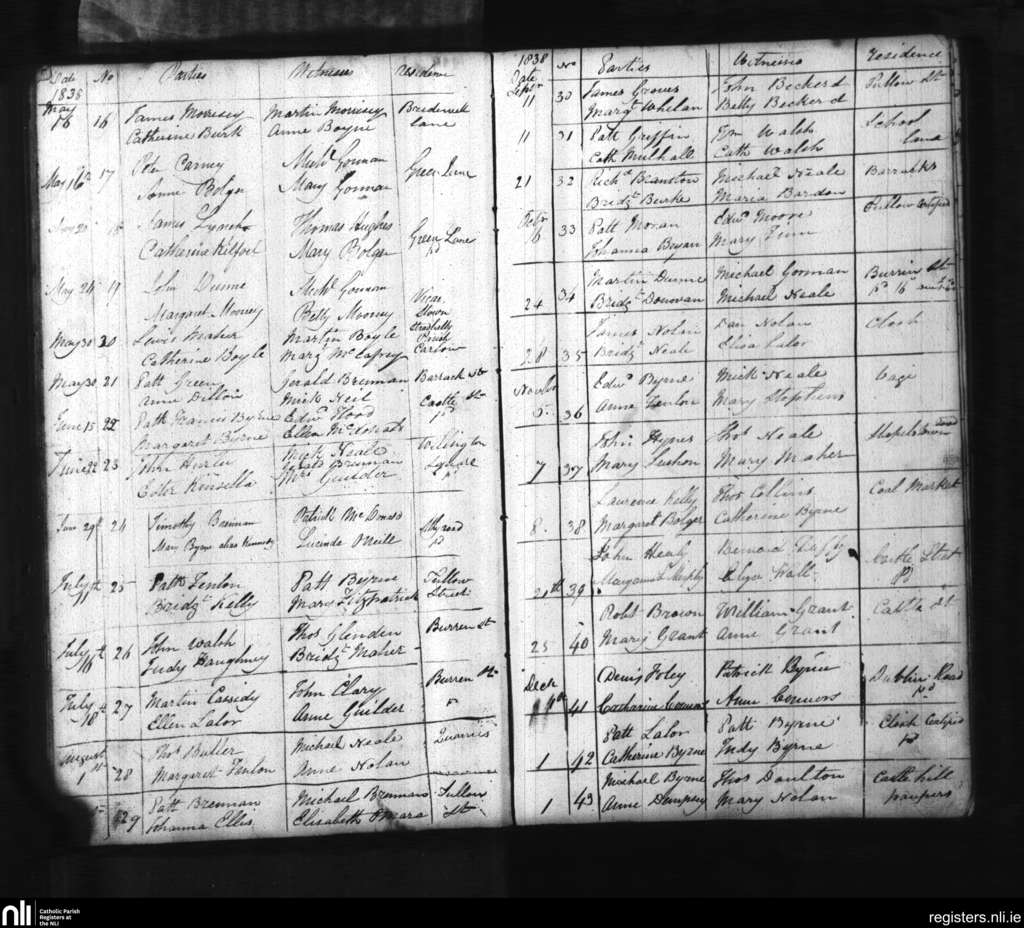 Date No Parties Witnesses Residence
1838
May 16 16 James Morrisey Martin Morrisey
Catherine Burk Anne Boyne Lane
May 16th 17 Peter Carney Michl Gorman Green Lane
Bolger Mary Gorman
James Lynch Thomas Hughes Green Lane
Catherine Mary Bolger
May 24 19 John Dunne Michl Gorman
Margaret Mooney Betty Mooney
May 30 20 Lewis Maher Martin Boyle Parish
Catherine Boyle Marg McCafrey Carlow
May 30 21 Patt Green Gerald Brennan Barrack St
Anne Dillon Mick Neil
June 15 22 Patk Francis Byrne Edwd Hood Castle St
Margaret Byrne Ellen
June 22 23 John Mick Neale Wellington
Ester Kinsella Mrs Guilder Square
June 29th 24 Timothy Brennan Patrick McDonald
Mary Byrne alias Kennedy Lucinda ONeill pd
July 11th 25 Patt Fenlon Patt Byrne Tullow
Bridgt Kelly Mary Fitzpatrick Street
July 16th 26 John Walsh Thos Glenden Burren St
Judy Haughney Bridgt Maher
July 18th 27 Martin Cassedy John Clary Burren St
Ellen Lalor Anne Guilder
August 1st 28 Thos Butler Michael Neale Quarries
Margaret Fenlon Anne Nolan
29 Patt Brennan Michael Brennan Tullow
Johanna Ellis Elisabeth OMara St
1838
Date No Parties Witness Residence
Septr 11 30 James Groves John Beckerd Tullow St
Margt Whelan Betty Beckerd
11 31 Patt Griffin Tim Walsh School
Cath Mulhall Cath Walsh Lane
21 32 Richd Branston Michael Neale Barracks
Bridgt Burke Maria Bardon
Octbr 16 33 Patt Moran Edwd Moore Tullow Certified
Johanna Bryan Mary Finn
24 34 Martin Dunne Michael Gorman Burrin St
Bridgt Donovan Michael Neale
28 35 James Nolan Dan Nolan Clash
Bridgt Neale Eliza Lalor
Novbr 5 36 Edwd Byrne Mick Neale
Anne Fenlon Mary Stephens
7 37 John Hynes Thos Neale
Mary Mary Maher
8 38 Laurence Kelly Thos Collins Coal Market
Margaret Bolger Catherine Byrne
21th 39 John Healy Bernard Castle Street
Margaret Eliza Hall pd
25 40 Robt Brown William Grant Castle St
Mary Grant Anne Grant
Decb 41 Denis Foley Patrick Byrne Dublin Road
Catharine Connors Anne Connors pd
1 42 Patt Lalor Patt Byrne Clash Certified
Catherine Byrne Judy Byrne pd
1 43 Michael Byrne Thos Doulton Castle hill
Anne Dempsey Mary Nolan paupers
nli Catholic Parish
Registers at
the NLI
registers.nli.ie